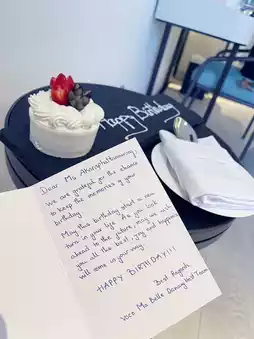 Happy Birthday
Dear Ms
we are grateful for the chance
to keep the memories of your
birthday.
May this birthday start a new
turn in your life. As you look
ahead to the future, may we wish
you all the best, joy and happiness
will come in your way.
HAPPY BIRTHDAY!!!
Best Regards,
voco Ma Belle Danang Host Team